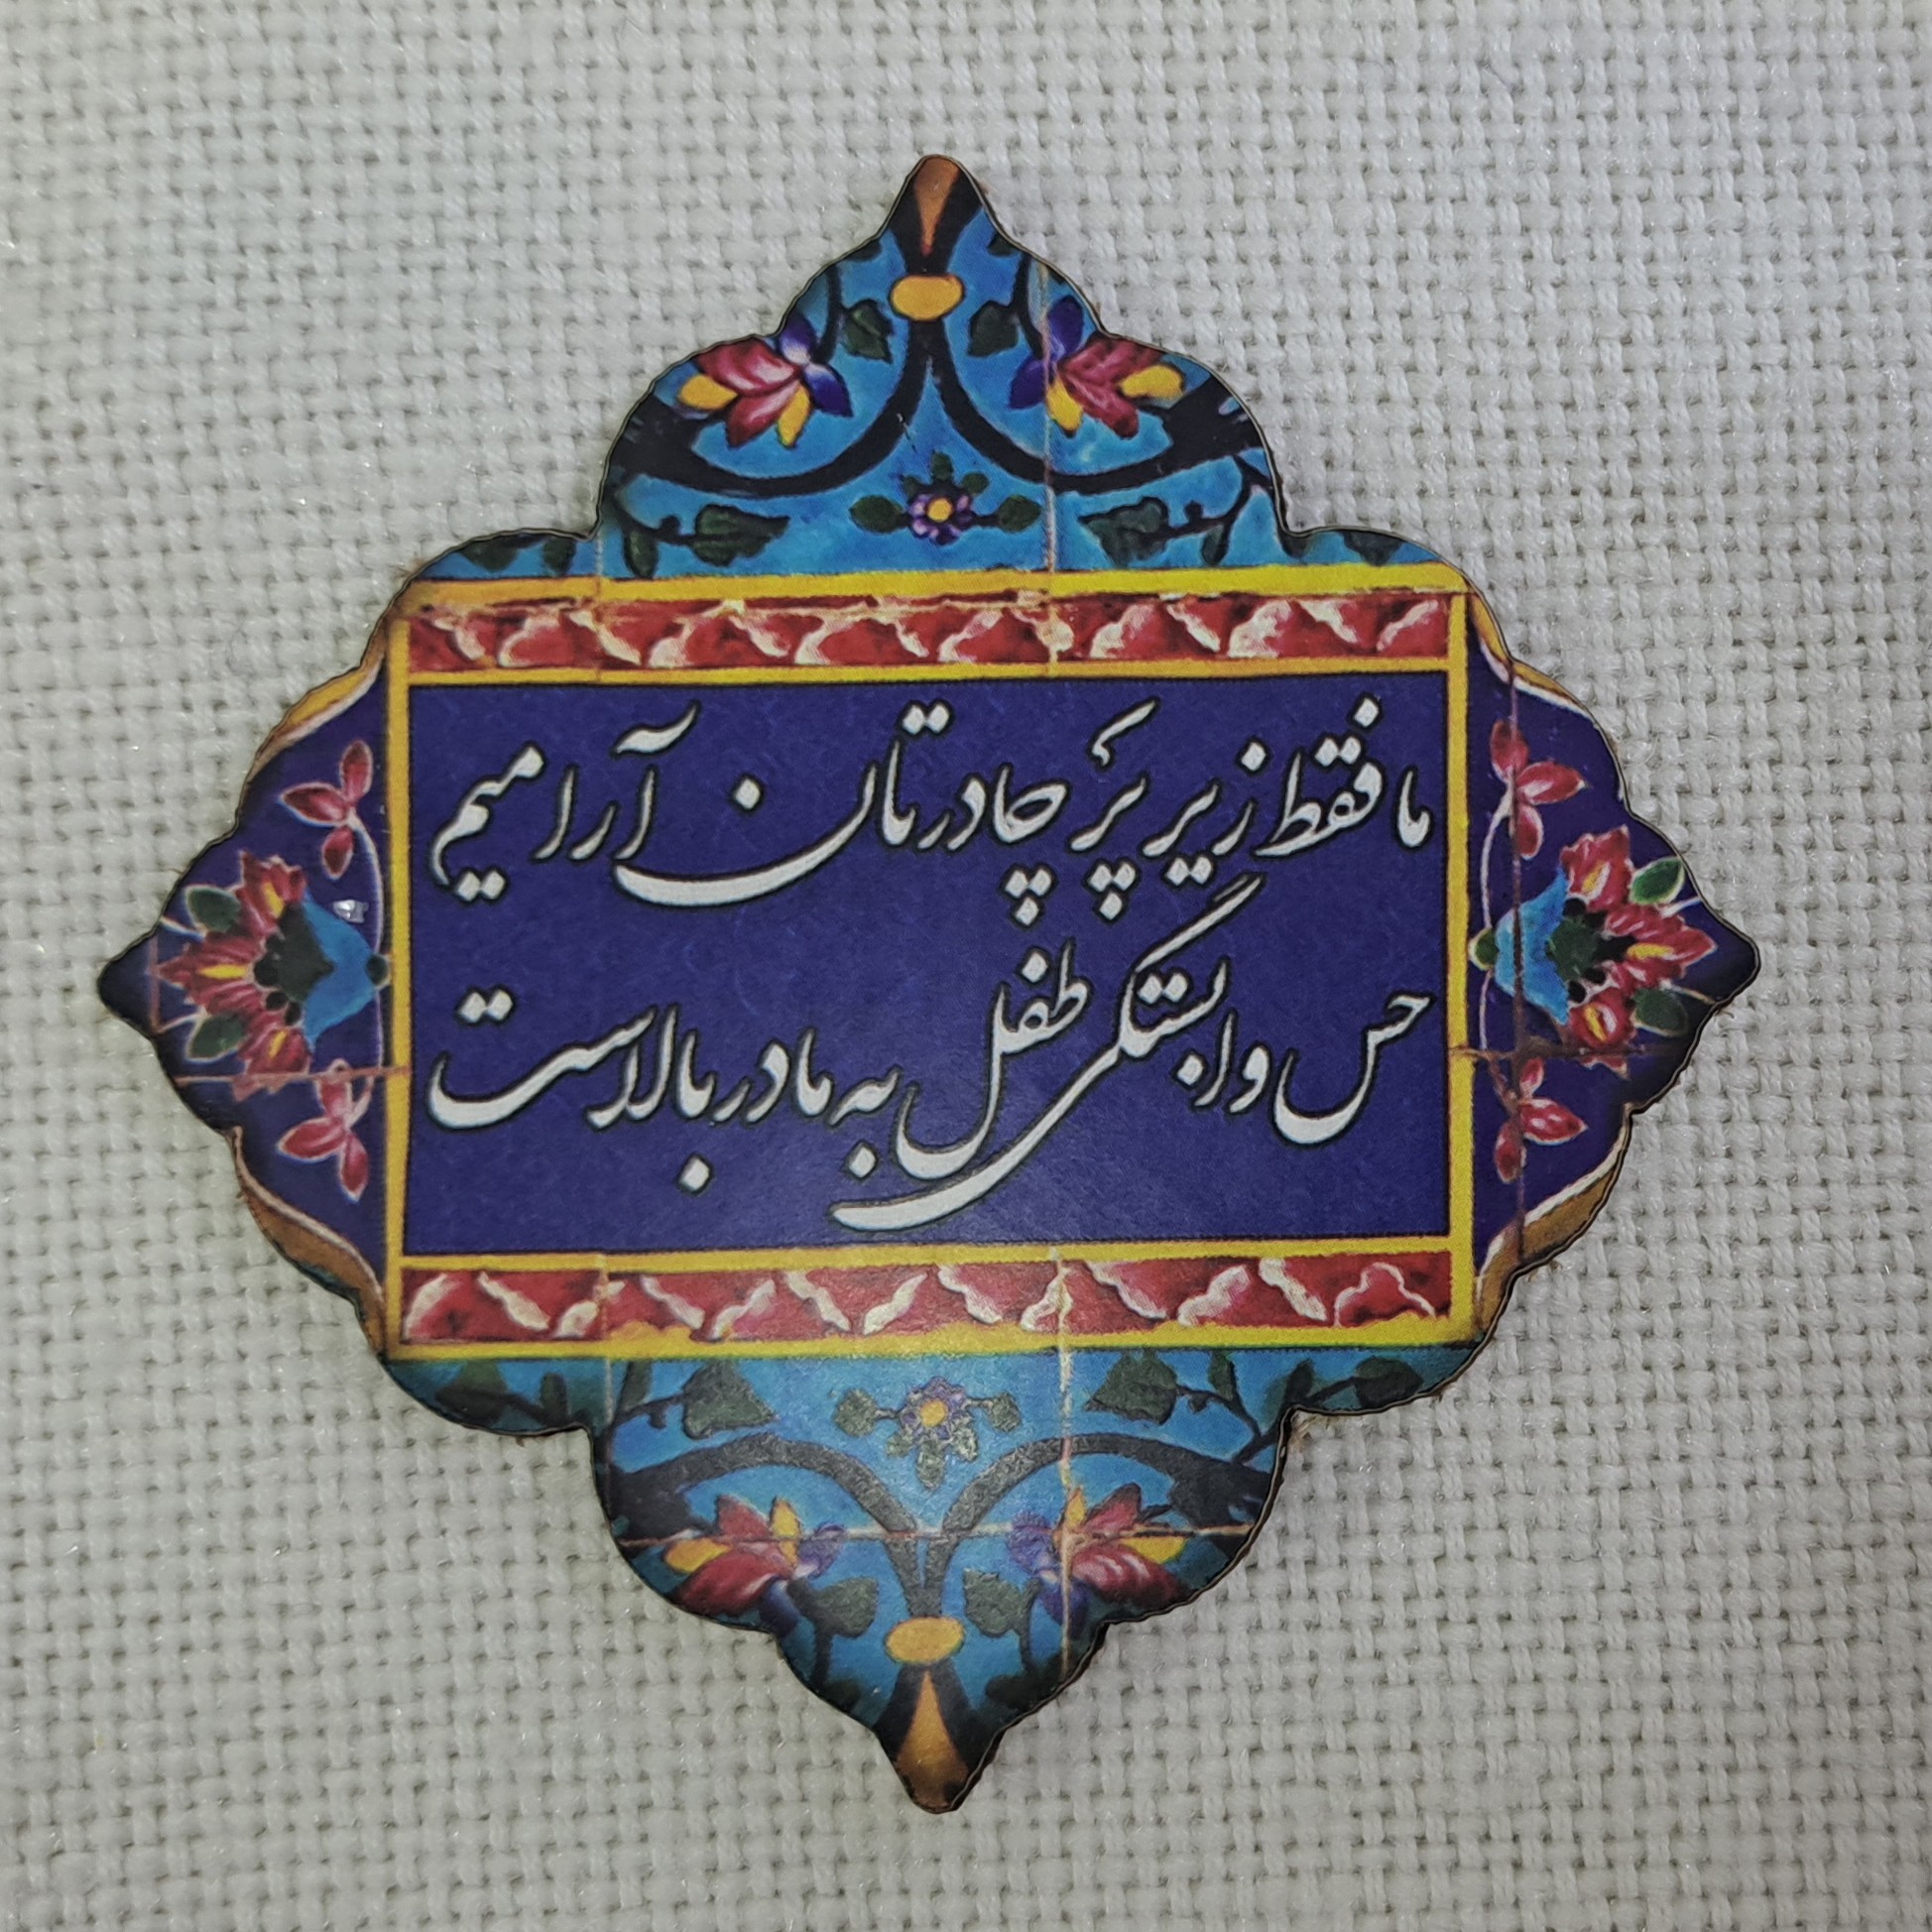 ما فقط زیر پَرِ چادرتان آرامیم
حس وابستگی طفل به مادر بالاست